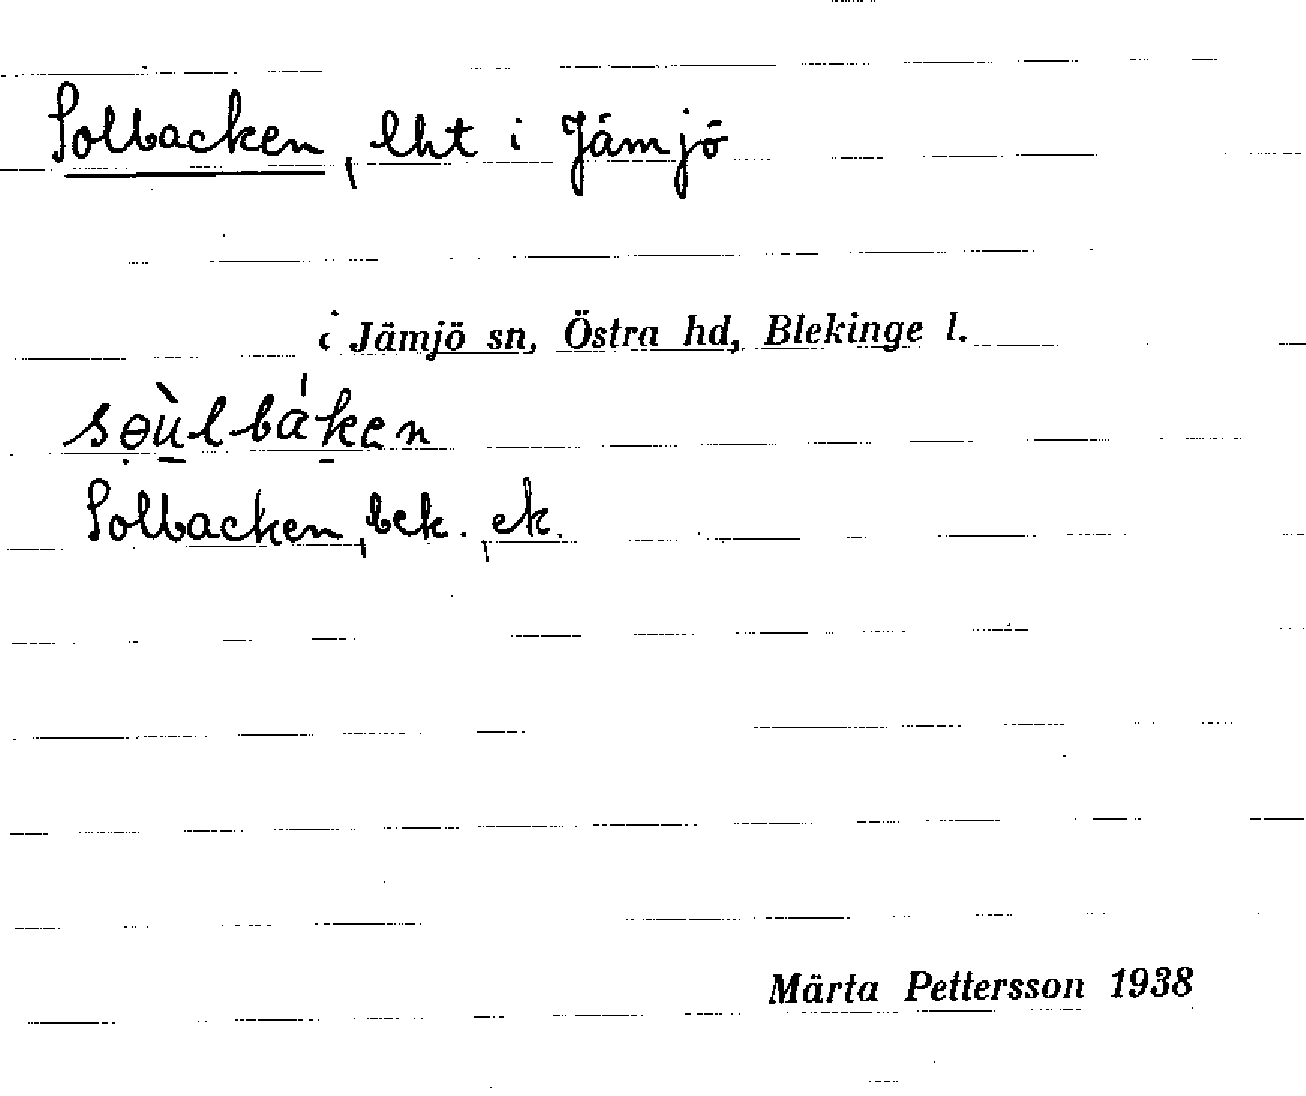 Solbacken, lht i Jämjö
i Jämjö sn, Östra hd, Blekinge l.
sɵ̣ù̱lbáḵen
Solbacken, bek., ek.
Märta Pettersson 1938